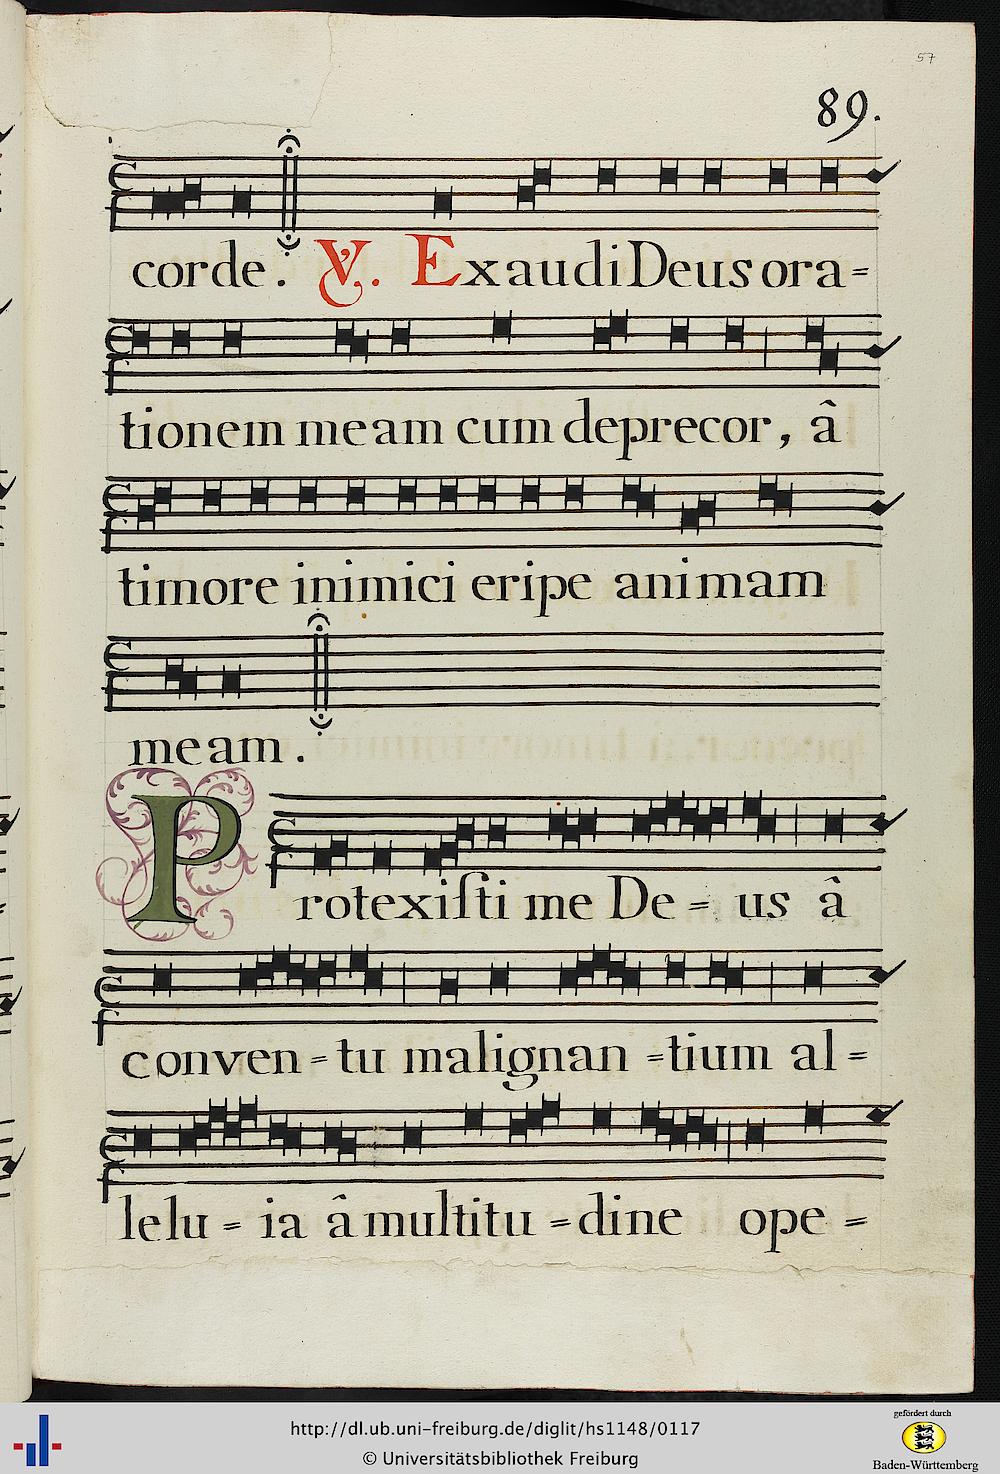 57
89.
corde. V. Exaudi Deus ora=
tionem meam cum deprecor, â
timore inimici eripe animam
meam.
Protexiſti me De= us â
conven=tu malignan=tium al=
lelu=ia â multitu=dine ope=
http://dl.ub.uni-freiburg.de/diglit/hs1148/0117
© Universitätsbibliothek Freiburg
gefördert durch
Baden-Württemberg